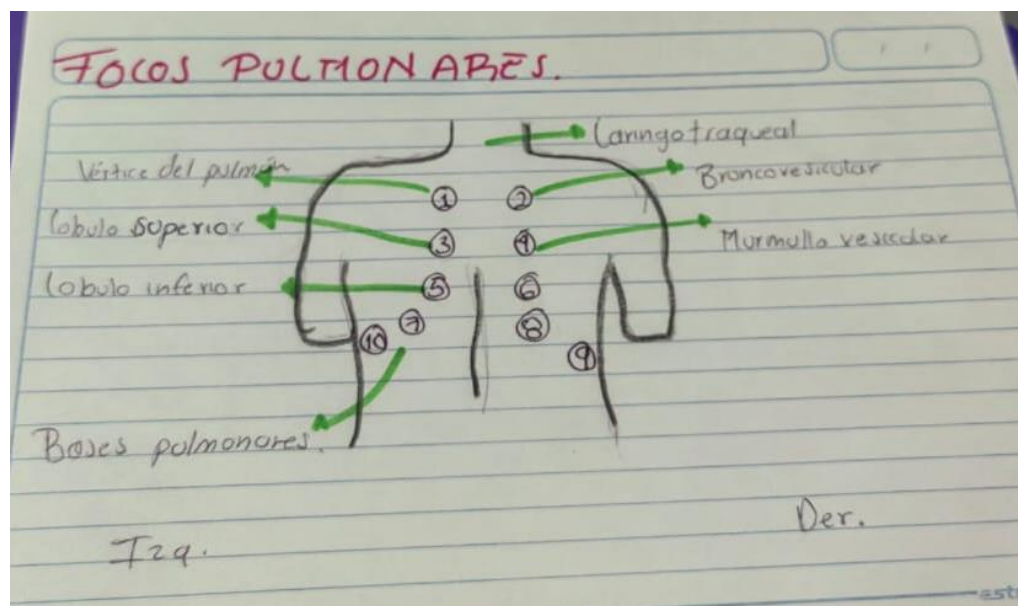 FOCOS PULMONARES.
Laringotraqueal
Vértice del pulmón
Broncovesicular
lobulo superior
Murmullo vesicular
lobulo inferior
1
2
3
4
5
6
7
8
10
9
Bases pulmonares.
Der.
Izq.